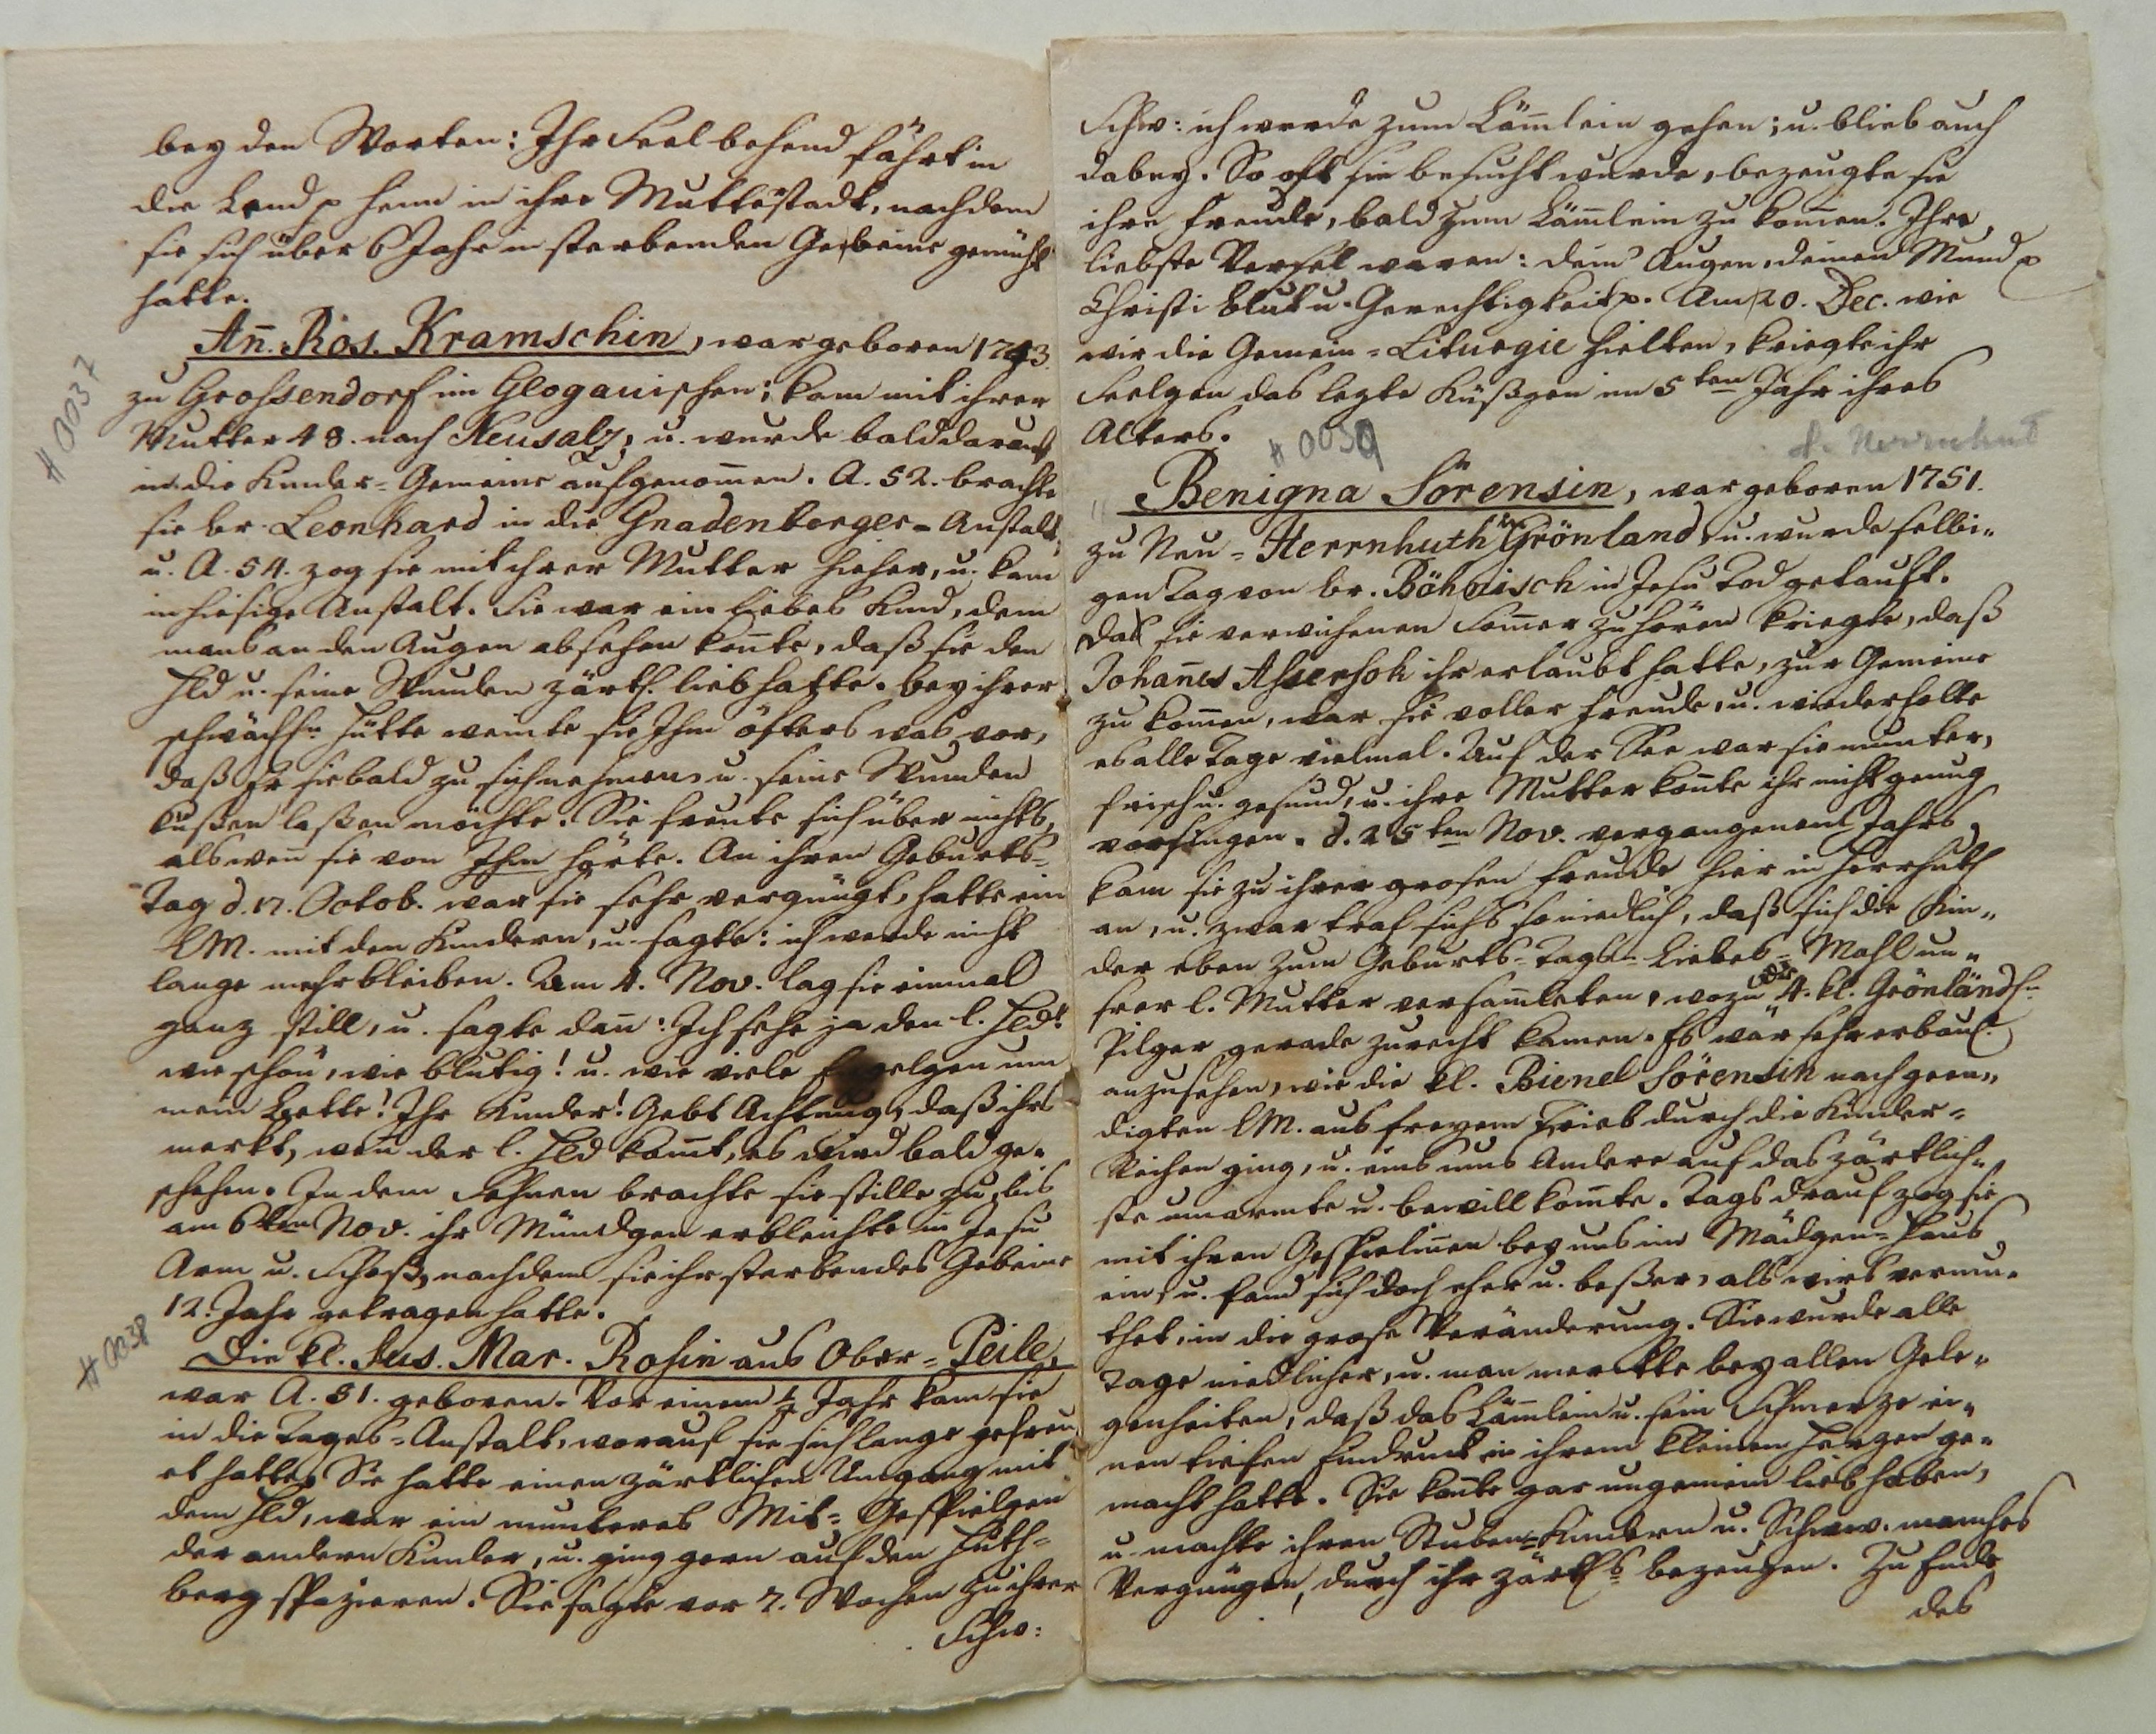 bey den Worten: Ihr Seel behend fährt in
die Länd p heim in ihre Mutterstadt, nachdem
sie sich über 6 Jahr in sterbenden Gebeine gemüht
hatte.
Añ. Ros. Kramschin, war geboren 1743.
zu Grossendorf im Glogauischen; kam mit ihrer
Mutter 48. nach Neusalz, u. wurde bald darauf
in die Kinder-Gemeine aufgenom̄en. A. 52. brachte
sie br. Leonhard in die Gnadenberger-Anstalt,
u. A. 54. zog sie mit ihrer Mutter hieher, u. kam
in hiesige Anstalt. Sie war ein liebes Kind, dem
mans an den Augen absehen kon̄te, daß sie den
Hld u. seine Wunden zärtl. lieb hatte. Bey ihrer
schwächl. Hütte weinte sie Ihm öfters was vor,
daß Er sie bald zu sich nehmen u. seine Wunden
küßen laßen möchte. Sie freute sich über nichts,
als wen̄ sie von Ihm hörte. An ihren Geburts-
Tag d. 17. Octob. war sie sehr vergnügt, hatte ein
LM. mit den Kindern, u. sagte: ich werde nicht
lange mehr bleiben. Am 4. Nov. lag sie einmal
ganz still, u. sagte dan̄: Ich sehe ja den l. Hld!
wie schön, wie blutig! u. wie viele Engelgen um
mein Bette! Ihr Kinder! Gebt Achtung, daß ihrs
merkt, wen̄ der l. Hld kom̄t, es wird bald ge-
schehen. In dem Sehnen brachte sie stille zu, bis
am 6ten Nov. ihr Mündgen erbleichte in Jesu
Arm u. Schooß, nachdem sie ihr sterbendes Gebeine
12. Jahr getragen hatte.
Die kl. Sus. Mar. Rosin aus Ober-Peile,
war A. 51. geboren. Vor einem ½ Jahr kam sie
in die Tages-Anstalt, worauf sie sich lange gefreu-
et hatte. Sie hatte einen zärtlichen Umgang mit
dem Hld, war ein munteres Mit-Gespielgen
der andern Kinder, u. ging gern auf den Huth-
berg spazieren. Sie sagte vor 7. Wochen zu ihrer
Schw:
#0037
#0038
Schw: ich werde zum Läm̄lein gehen; u. blieb auch
dabey. So oft sie besucht wurde, bezeugte sie
ihre Freude, bald zum Läm̄lein zu kom̄en. Ihre
liebste Versel waren: dein' Augen, deinen Mund p
Christi blut u. Gerechtigkeit p. Am 20. Dec. wie
wir die Gemein-Liturgie hielten, kriegte ihr
Seelgen das lezte Küßgen im 5ten Jahr ihres
Alters.
#0039
d. Herrnhut
Benigna Sörensin, war geboren 1751.
zu Neu-Herrnhuth in Grönland, u. wurde selbi-
gen Tag von br. Böhnisch in Jesu Tod getauft.
Das sie verwichenen Som̄er zu hören kriegte, daß
Johan̄es Assersok ihr erlaubt hatte, zur Gemeine
zu kom̄en, war sie voller Freude, u. wiederholte
es alle Tage vielmal. Auf der See war sie munter,
frisch u. gesund, u. ihre Mutter kon̄te ihr nicht genug
vorsingen. d. 25ten Nov. vergangenen Jahrs
kam sie zu ihrer grosen Freude hier in Herrnhuth
an, u. zwar traf sichs so niedlich, daß sich die Kin-
der eben zum Geburts-Tags-Liebes-Mahl un-
serer l. Mutter versam̄leten, wozu die 4. kl. Grönländsn
Pilger gerade zurecht kamen. Es war sehr erbaul.
anzusehen, wie die kl. Bienel Sörensin nach geen-
digten LM. aus freyem Trieb durch die Kinder-
Reihen ging, u. eins ums Andere auf das zärtlich-
ste umarmte u. bewillkom̄te. Tags drauf zog sie
mit ihren Gespielin̄en bey uns im Mädgen-Haus
ein, u. fand sich doch eher u. beßer, als wirs vermu-
thet, in die grose Veränderung. Sie wurde alle
Tage niedlicher, u. man merckte bey allen Gele-
genheiten, daß das Läm̄lein u. sein Schmerze ei-
nen tiefen Eindruck in ihrem kleinen Herzen ge-
macht hatte. Sie kon̄te gar ungemein lieb haben,
u. machte ihren Stuben-Kindern u. Schwn. manches
Vergnügen, durch ihr zärtls bezeugen. Zu Ende
des